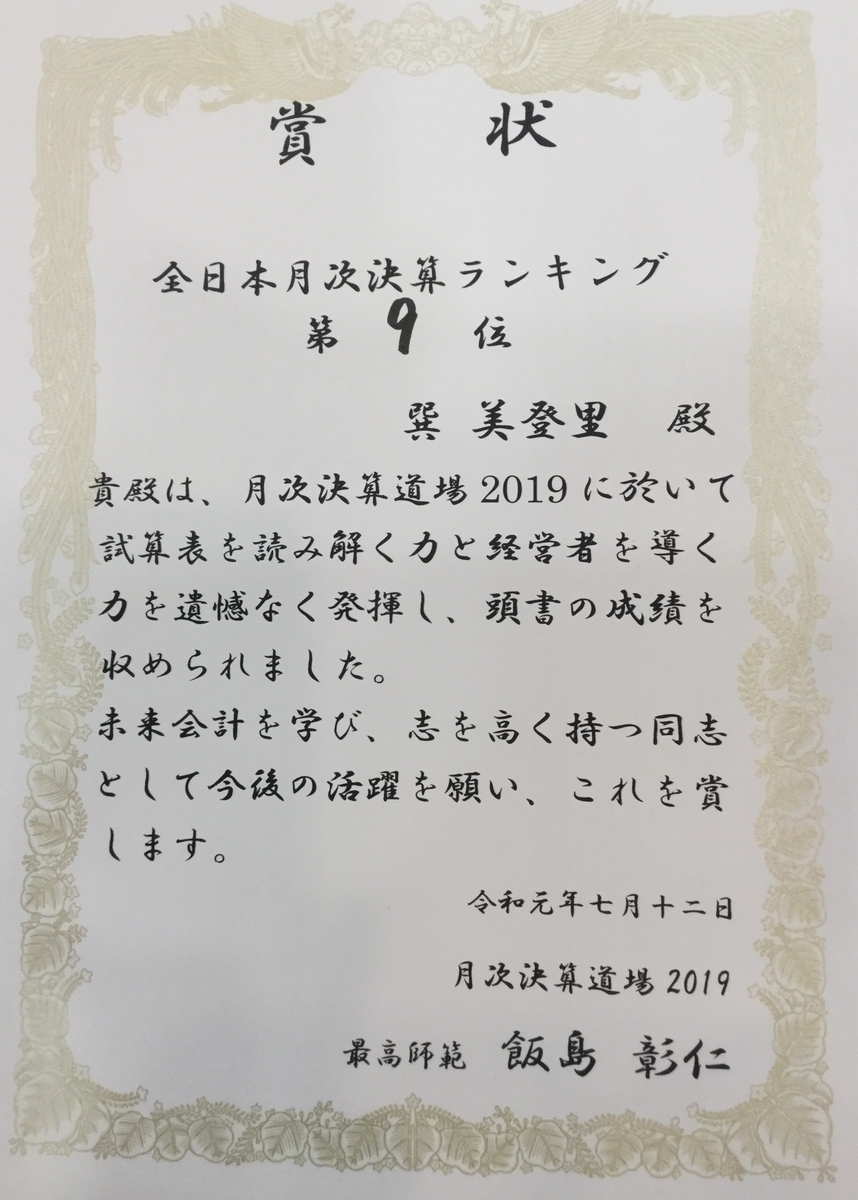 賞状
全日本月次決算ランキング
第 9 位
巽 美登里 殿
貴殿は、月次決算道場2019に於いて
試算表を読み解く力と経営者を導く
力を遺憾なく発揮し、頭書の成績を
収められました。
未来会計を学び、志を高く持つ同志
として今後の活躍を願い、これを賞
します。
令和元年七月十二日
月次決算道場2019
最高師範 飯島 彰仁